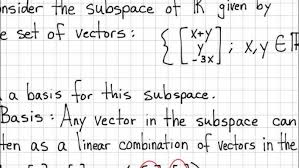 onsider the subspace of ℝ given by
e set of vectors: { [ x+y
y
-3x ] ; x,y ∈ ℝ
a basis for this subspace.
Basis: Any vector in the subspace can
ten as a linear combination of vectors in the